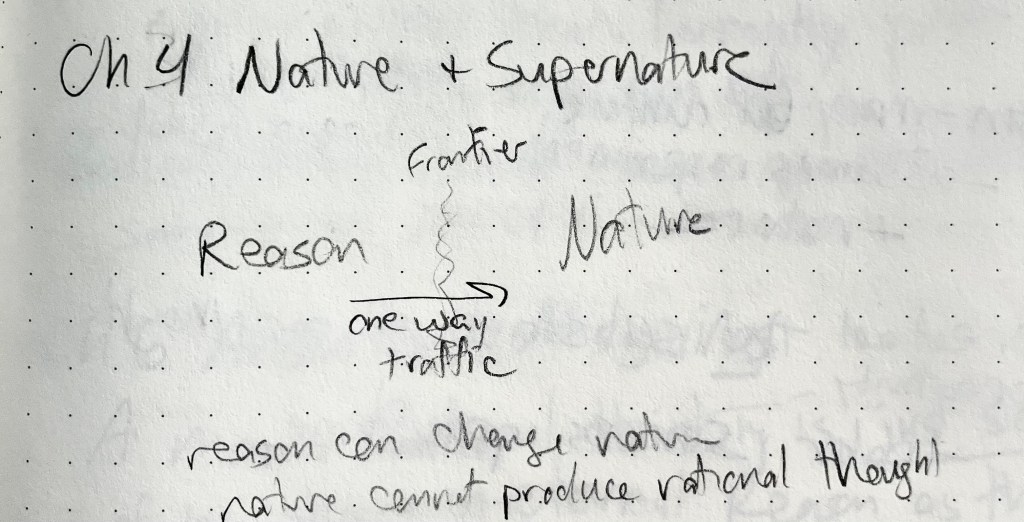 Ch 4 Nature + Supernature
Frontier
Reason
Nature
one way
traffic
reason can change nature
nature cannot produce rational thought